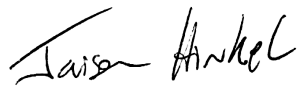 Jaison Hinkel